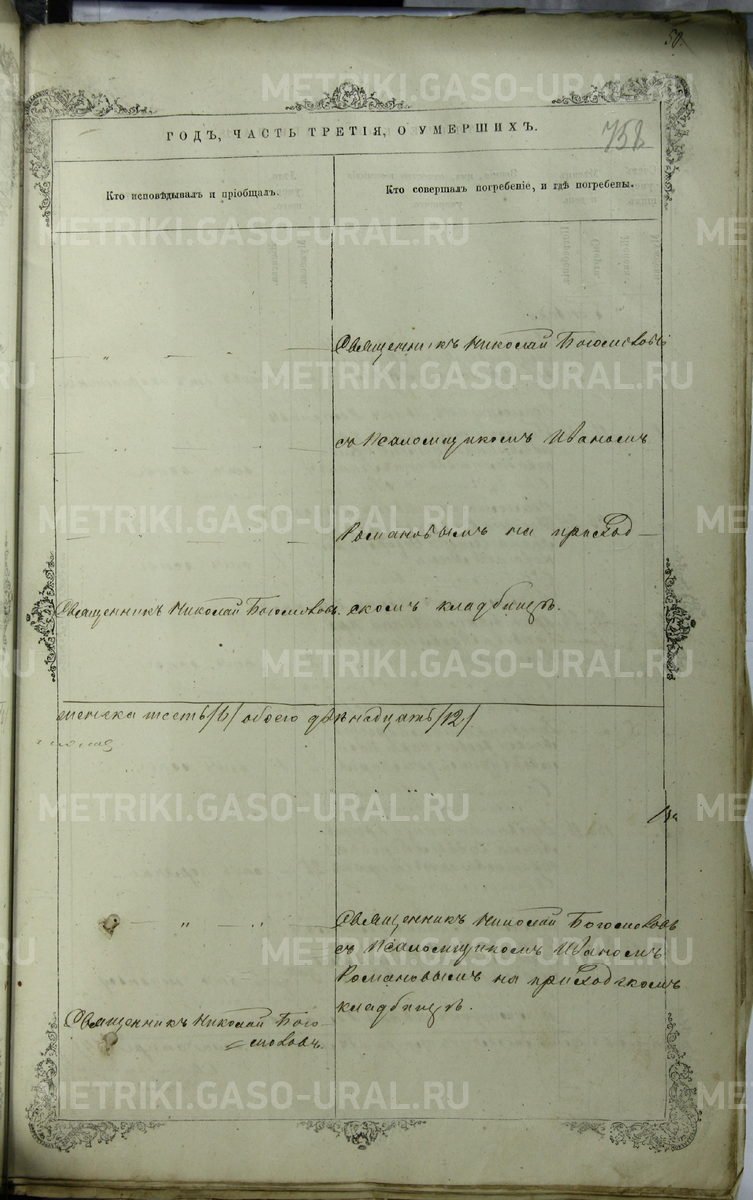 58
758
ГОДЪ, ЧАСТЬ ТРЕТІЯ, О УМЕРШИХЪ.
Кто исповѣдывалъ и пріобщалъ.
Кто совершалъ погребеніе, и гдѣ погребены.
Священникъ Николай Богословскій
съ Псаломщикомъ Иваномъ
Романовымъ на приход-
Священникъ Николай Богословскій.
скомъ кладбищѣ.
женска шесть /6/ обоего двѣнадцать /12/
Священникъ Николай Богословскій
съ Псаломщикомъ Иваномъ
Романовымъ на приходскомъ
кладбищѣ.
Священникъ Николай Бого-
METRIKI.GASO-URAL.RU